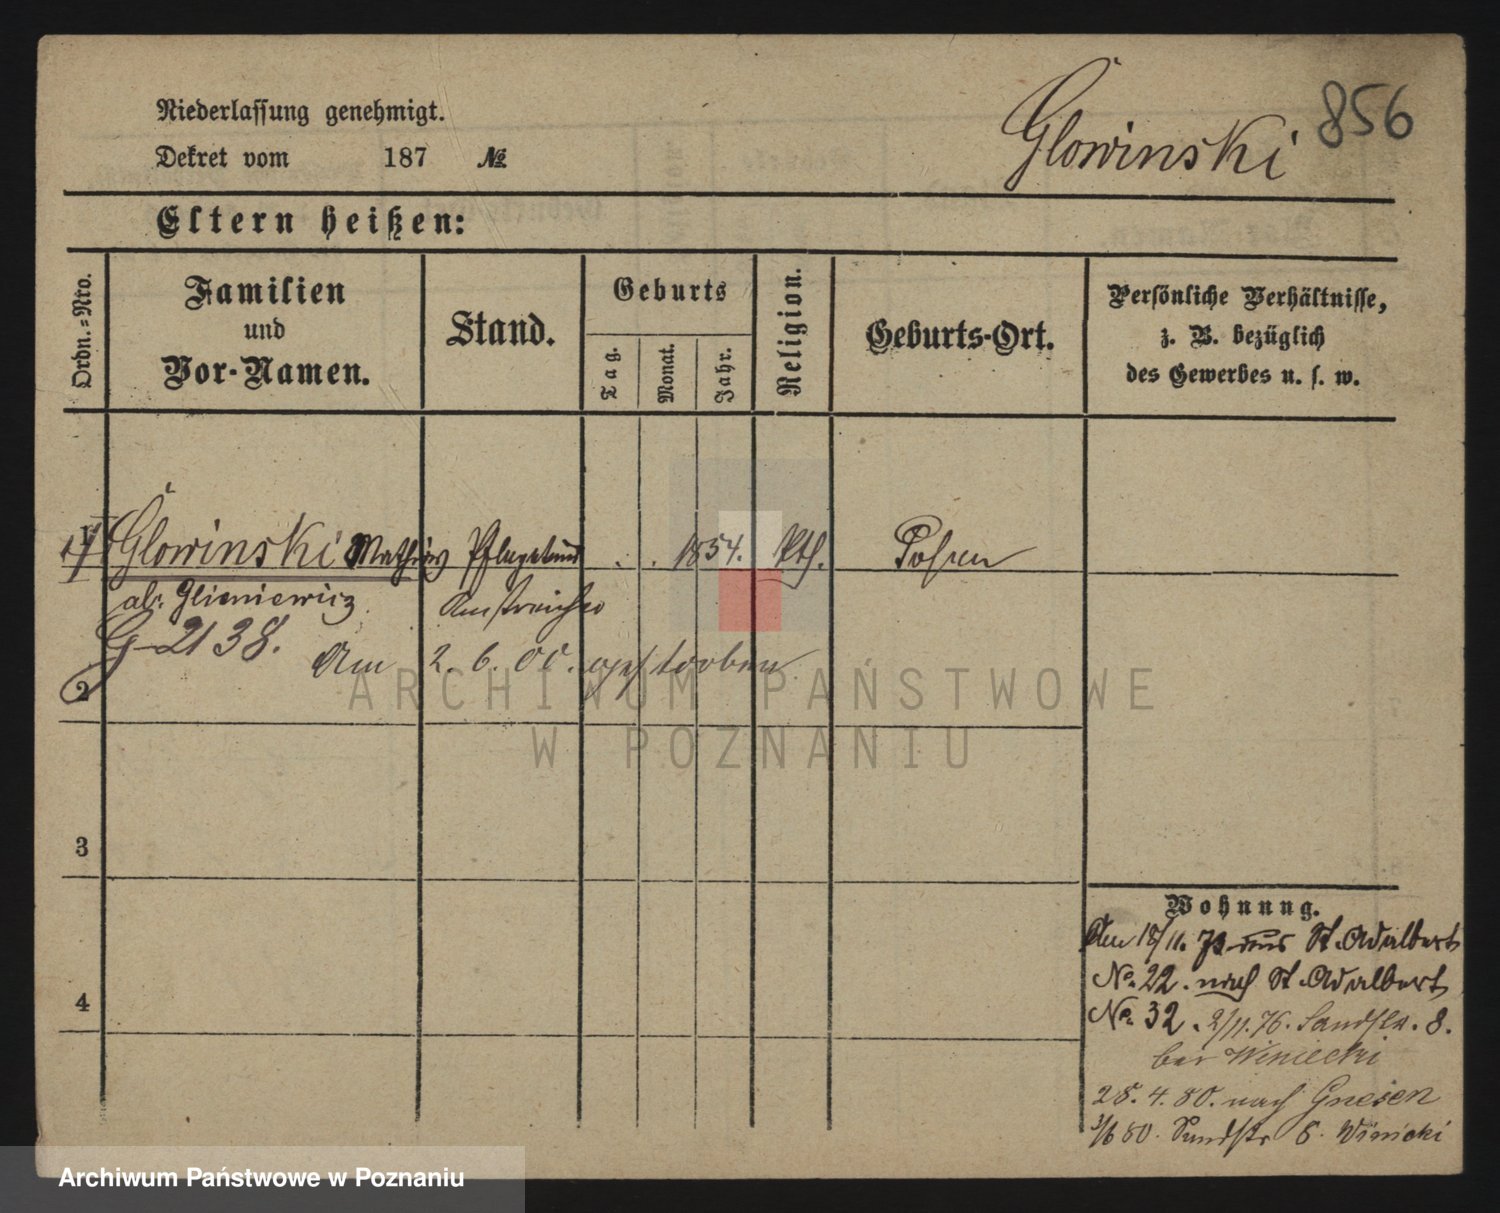 Glowinski 856
Niederlassung genehmigt.
Dekret vom 187 №
Eltern heißen:
Ordn.=Nro.
Familien
und
Vor-Namen.
Stand.
Geburts
Tag.
Monat.
Jahr.
Religion.
Geburts-Ort.
Persönliche Verhältnisse,
z. B. bezüglich
des Gewerbes u. s. w.
1 Glowinski Mathias Pflegekind . . 1854. kth. Posen
als Glieniewicz Anstreicher
G-2138. Am 2. 6. 00. gestorben
2
3
4
Wohnung.
Am 18/11. aus St. Adalbert
No. 22. nach St. Adalbert
No. 32. 2/11. 76. Sandstr. 8.
bei Winiecki
28. 4. 80. nach Gnesen
3/6 80. Sandstr 8. Winiecki
ARCHIWUM PAŃSTWOWE
W POZNANIU
Archiwum Państwowe w Poznaniu